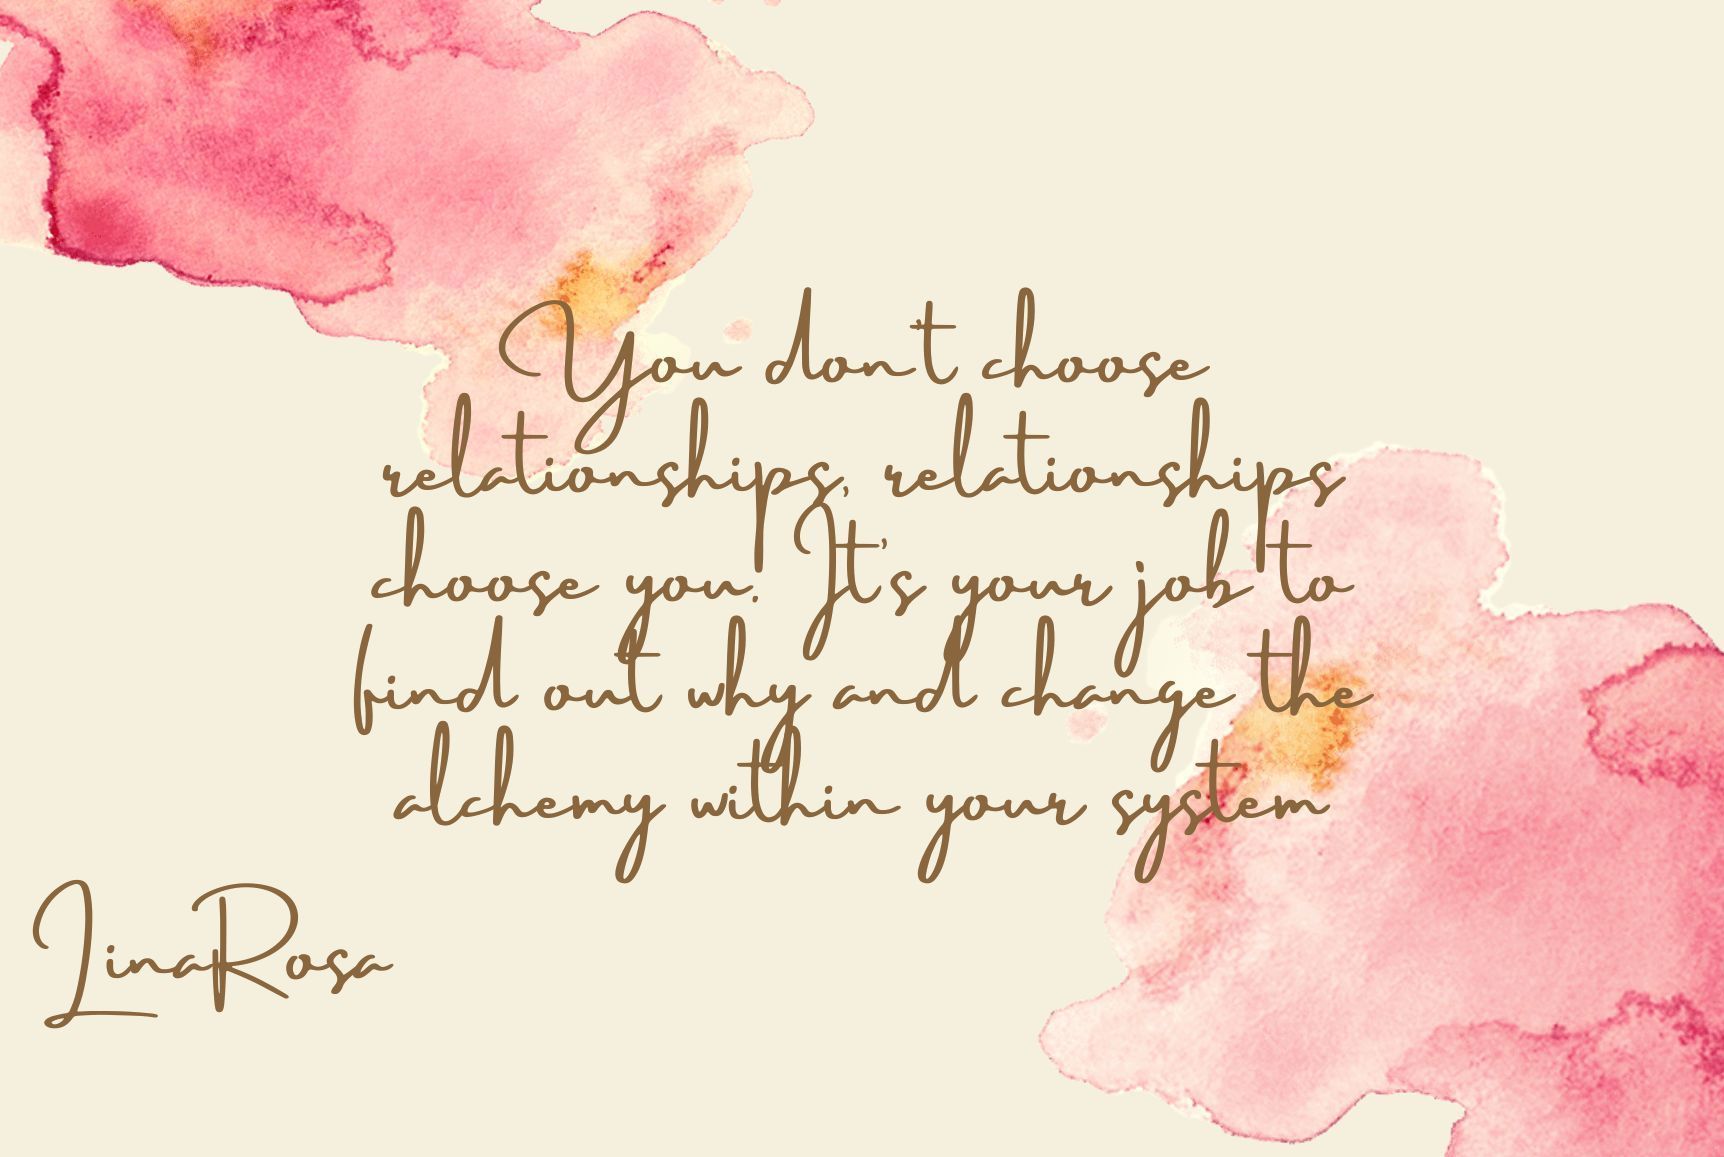 You don't choose
relationships, relationships
choose you. It's your job to
find out why and change the
alchemy within your system
LinaRosa